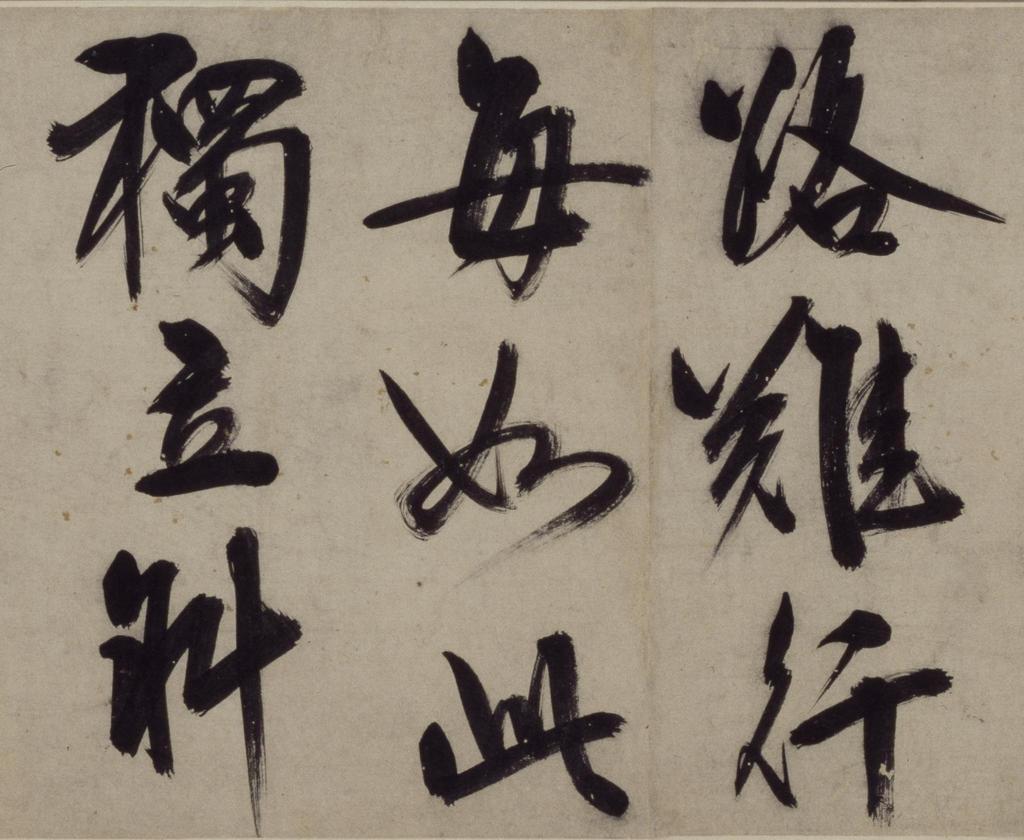 路難行
每如此
獨立斜